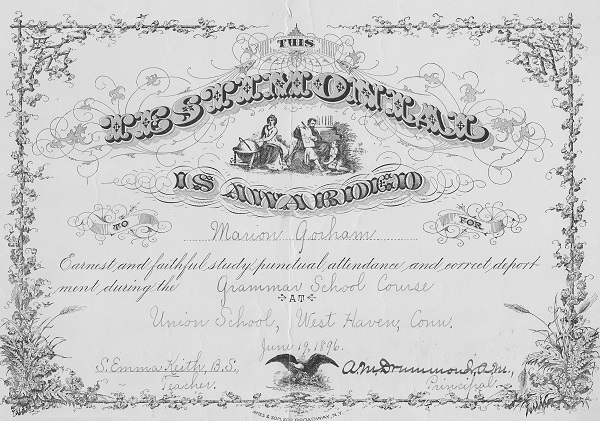 THIS
TESTIMONIAL
IS AWARDED
TO Marion Gorham FOR
Earnest and faithful study, punctual attendance and correct deport-
ment, during the Grammar School Course
AT
Union School, West Haven, Conn.
June 19, 1896.
S. Emma Keith, B.S., A.M. Drummond, A.M.,
Teacher. Principal.
& SON, BROADWAY, N.Y.